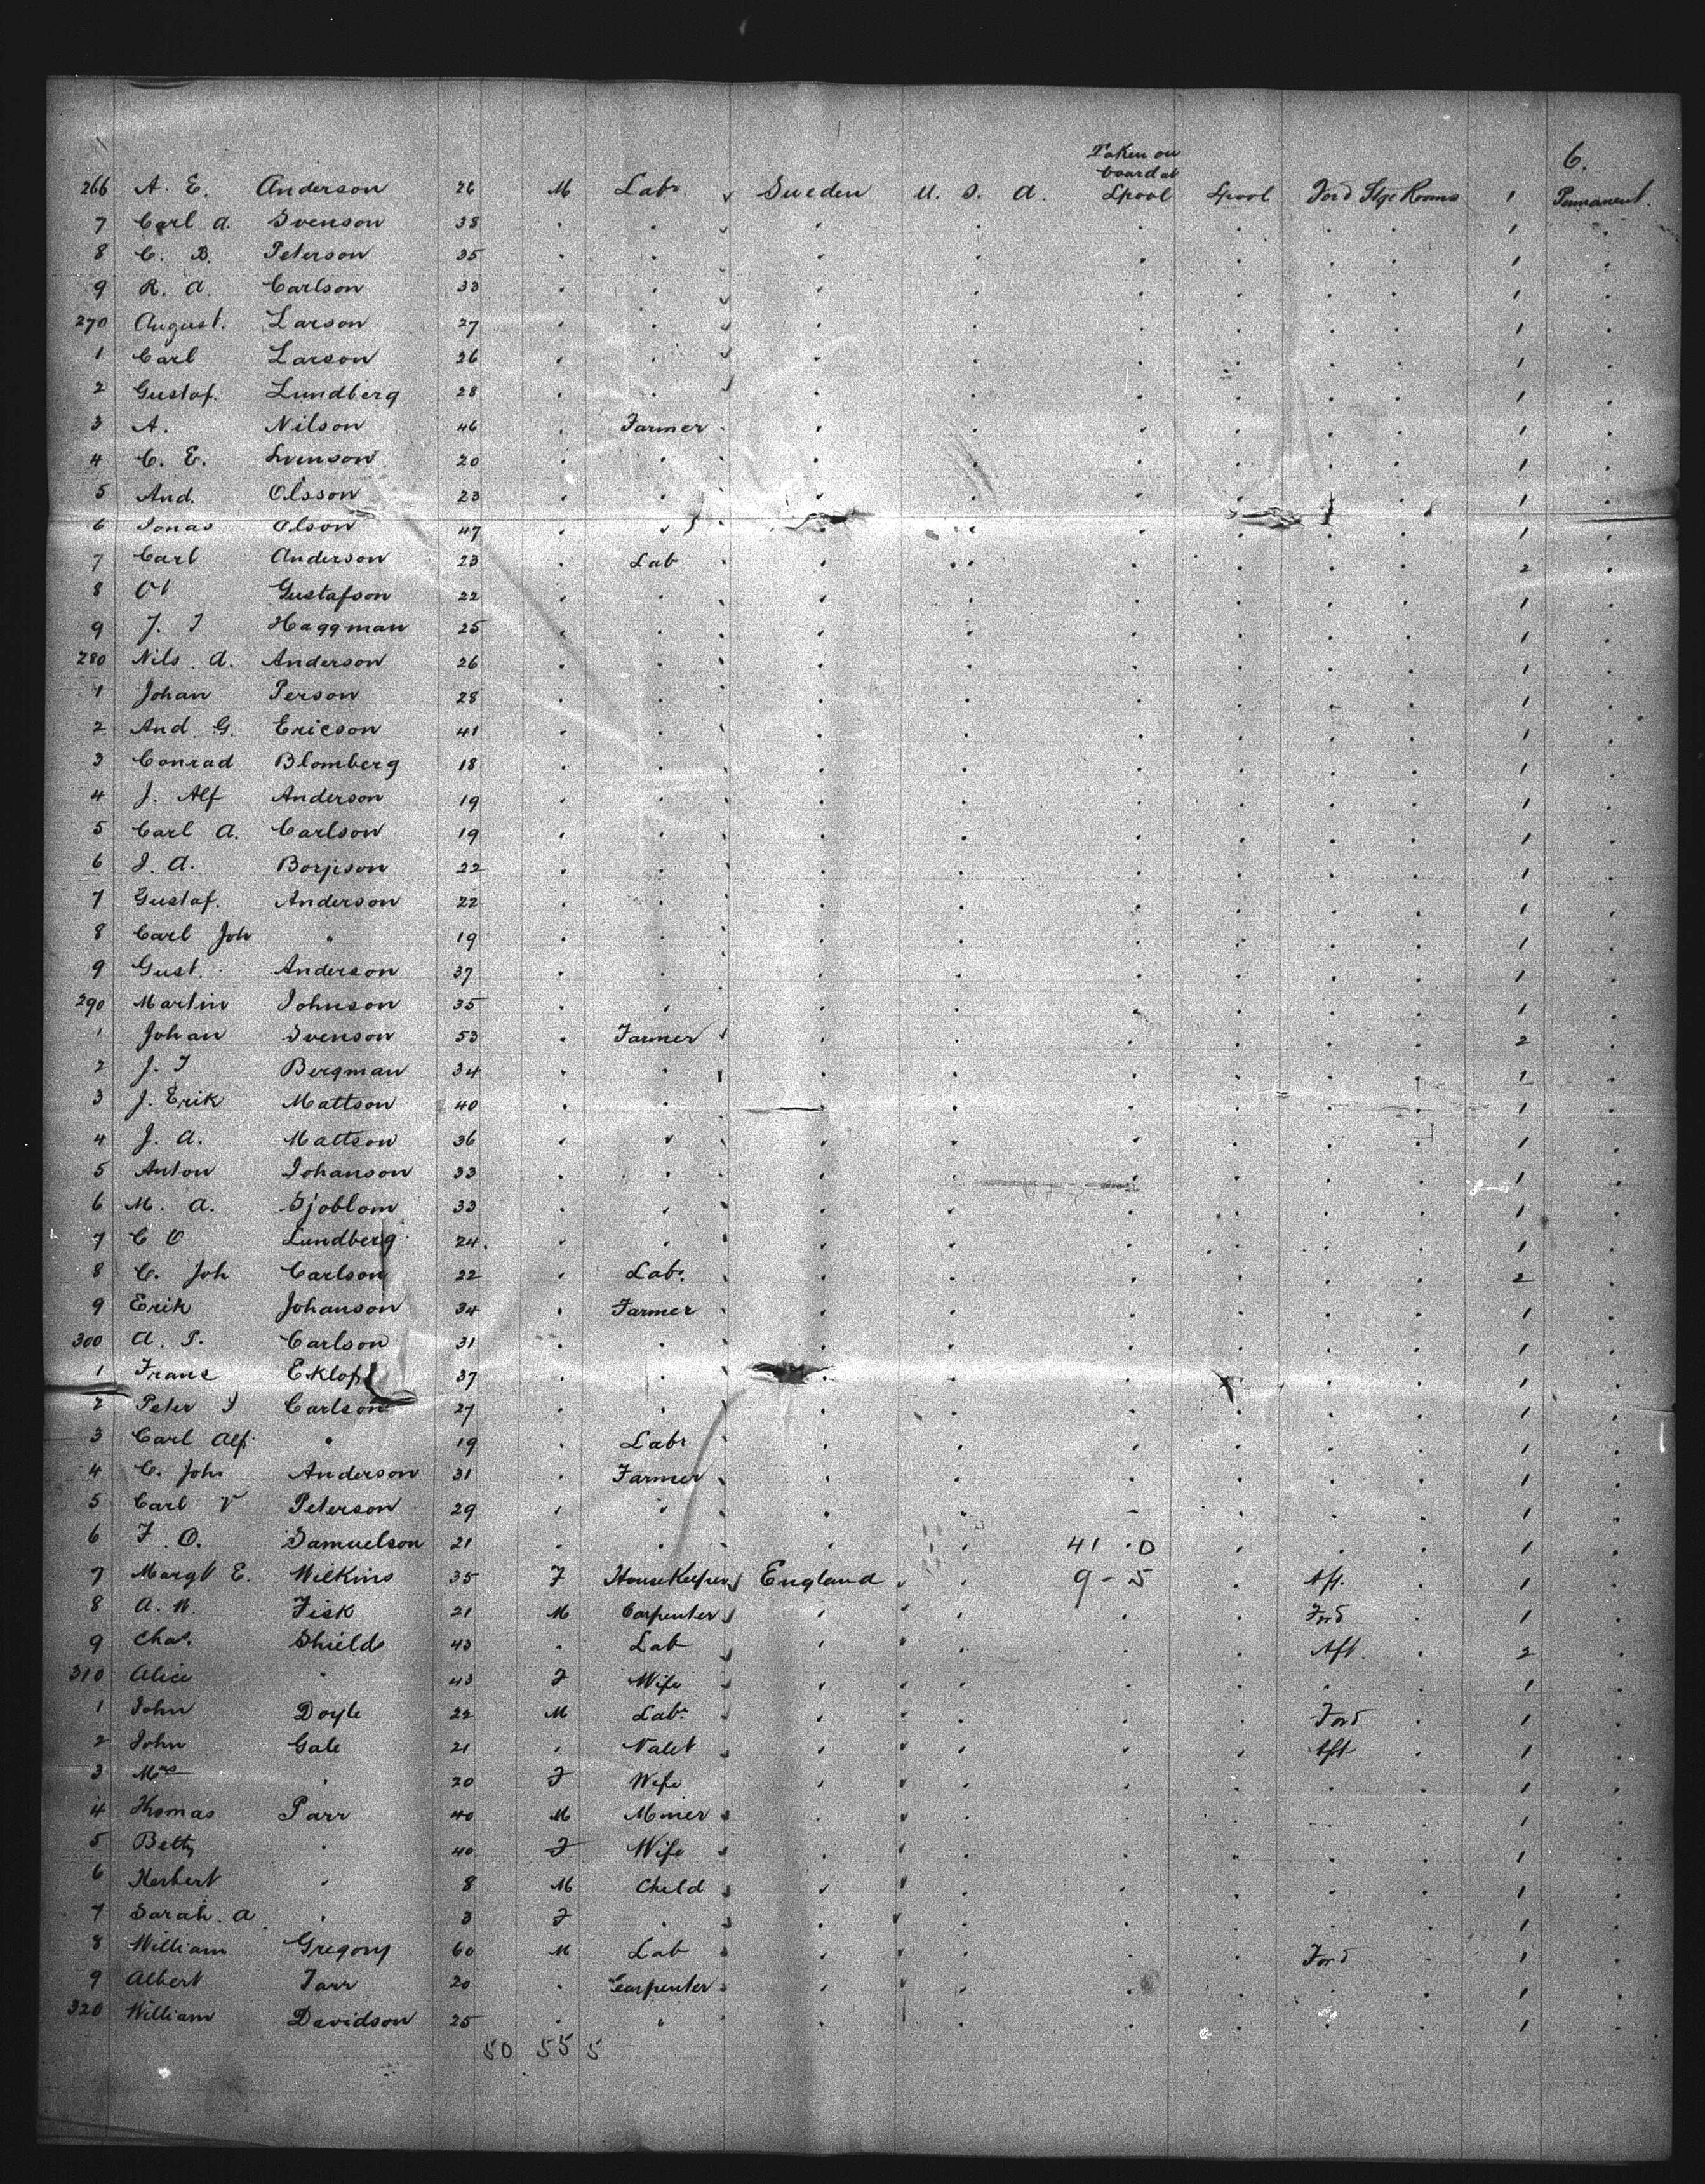 6.
Taken on
board at
266 A. E. Anderson 26 M Labr. Sweden U. S. A. Lpool Lpool Ford Stge Rooms 1 Permanent.
7 Carl A. Svenson 38 . . . . . . . 1 .
8 C. B. Peterson 35 . . . . . . . 1 .
9 R. A. Carlson 33 . . . . . . . 1 .
270 August. Larson 27 . . . . . . . 1 .
1 Carl Larson 26 . . . . . . . 1 .
2 Gustaf. Lundberg 28 . . . . . . . 1 .
3 A. Nilson 46 . Farmer . . . . . 1 .
4 C. E. Svenson 20 . . . . . . . 1 .
5 And. Olsson 23 . . . . . . . 1 .
6 Jonas Olson 47 . . . . . . . 1 .
7 Carl Anderson 23 . Lab . . . . . 2 .
8 Gustafson 22 . . . . . . . 1 .
9 J. Haggman 25 . . . . . . . 1 .
280 Nils A. Anderson 26 . . . . . . . 1 .
1 Johan Person 28 . . . . . . . 1 .
2 And. G. Ericson 41 . . . . . . . 1 .
3 Conrad Blomberg 18 . . . . . . . 1 .
4 J. Alf Anderson 19 . . . . . . . 1 .
5 Carl A. Carlson 19 . . . . . . . 1 .
6 J. A. 22 . . . . . . . 1 .
7 Gustaf. Anderson 22 . . . . . . . 1 .
8 Carl Joh " 19 . . . . . . . 1 .
9 Gust. Anderson 37 . . . . . . . 1 .
290 Martin Johnson 35 . . . . . . . 1 .
1 Johan Svenson 53 . Farmer . . . . . 2 .
2 J. Bergman 34 . . . . . . . 1 .
3 J. Erik Mattson 40 . . . . . . . 1 .
4 J. A. Mattson 36 . . . . . . . 1 .
5 Anton Johanson 33 . . . . . . . 1 .
6 M. A. Sjoblom 33 . . . . . . . 1 .
7 C O Lundberg 24. . . . . . . . 1 .
8 C. Joh Carlson 22 . Labr. . . . . . 2 .
9 Erik Johanson 34 . Farmer . . . . . 1 .
300 A. P. Carlson 31 . . . . . . . 1 .
1 Frans 37 . . . . . . . 1 .
2 Peter Carlson 27 . . . . . . . 1 .
3 Carl Alf. " 19 . Labr . . . . . 1 .
4 C. John Anderson 31 . Farmer . . . . . 1 .
5 Carl V Peterson 29 . . . . . . . 1 .
6 F. O. Samuelson 21 . . . . 41 . 0 . . 1 .
7 Margt E. Wilkins 35 F HouseKeeper England . 9 - 5 . Aft. . 1 .
8 A. W. Fisk 21 M Carpenter . . . . Ford . 1 .
9 Chas. Shields 43 . Lab . . . . Aft. . 2 .
310 Alice " 43 F Wife . . . . . . 1 .
1 John Doyle 22 M Labr. . . . . Ford . 1 .
2 John Gale 21 . Valet . . . . Aft . 1 .
3 Mrs . 20 F Wife . . . . . . 1 .
4 Thomas Parr 40 M Miner . . . . . . 1 .
5 Betty . 40 F Wife . . . . . . 1 .
6 Herbert . 8 M Child . . . . . . 1 .
7 Sarah. A . 3 F . . . . . . . 1 .
8 William Gregory 60 M Lab . . . . Ford . 1 .
9 Albert 20 . Carpenter . . . . . . 1 .
320 William Davidson 25 . " . . . . . . 1 .
50 55 5